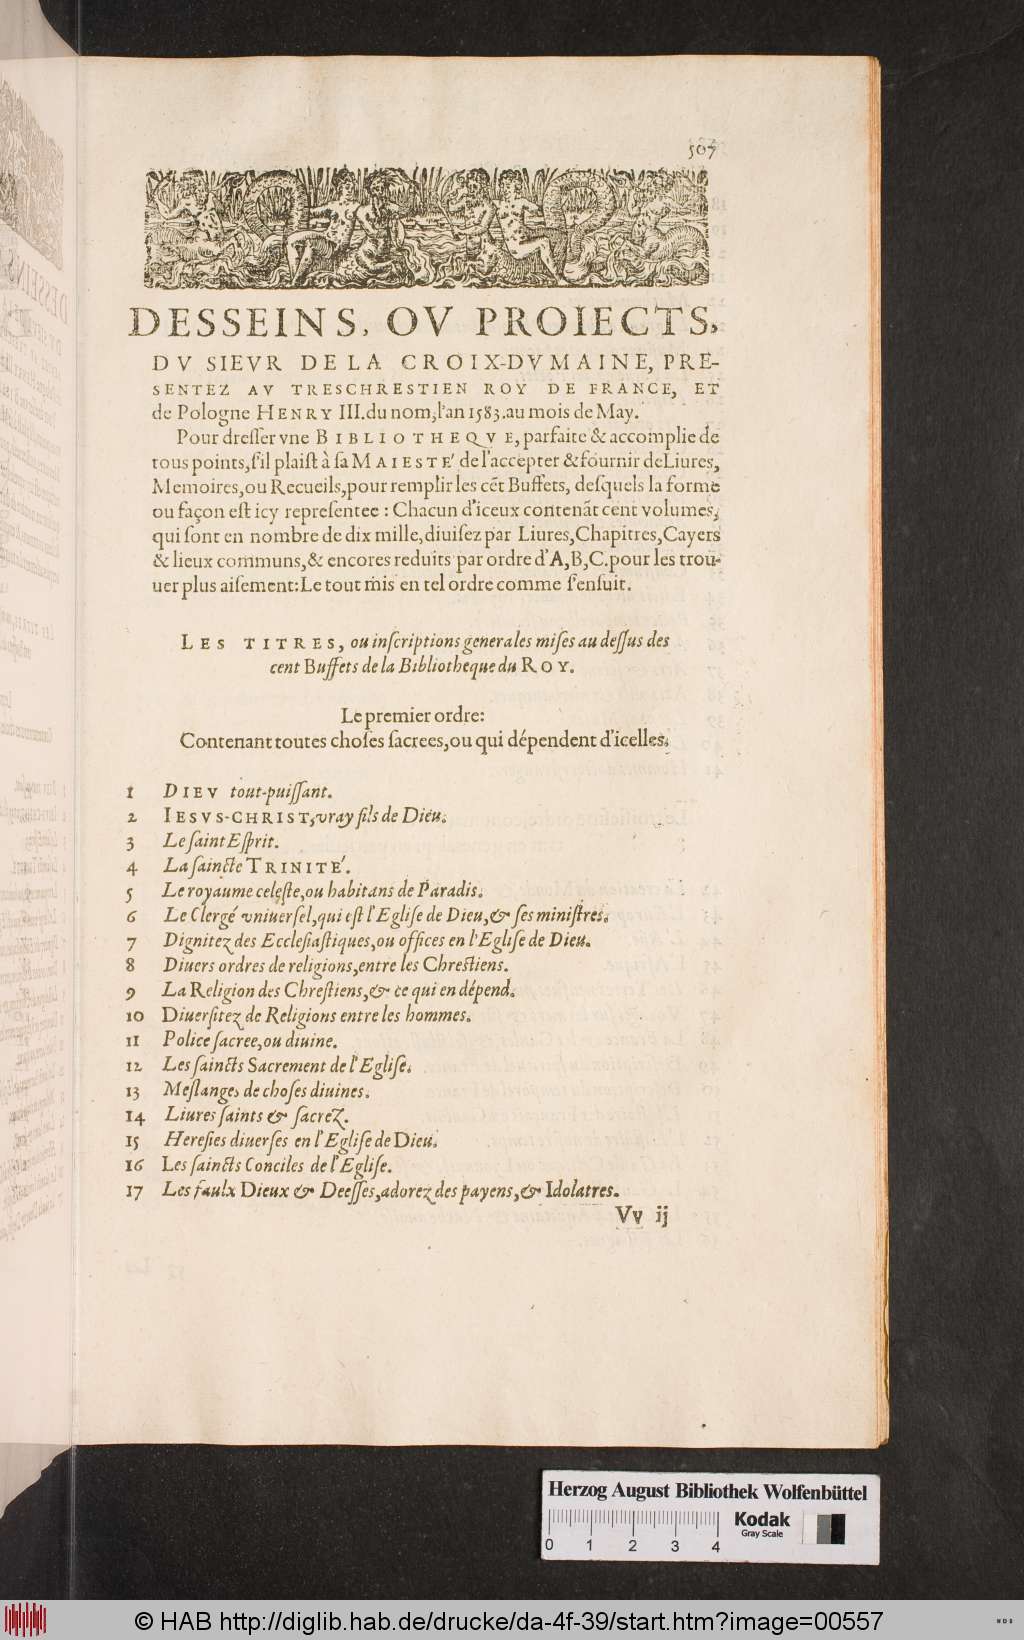 507
DESSEINS, OV PROIECTS,
DV SIEVR DE LA CROIX-DVMAINE, PRE-
SENTEZ AV TRESCHRESTIEN ROY DE FRANCE, ET
de Pologne HENRY III. du nom, l'an 1583. au mois de May.
Pour dresser vne BIBLIOTHEQVE, parfaite & accomplie de
tous points, s'il plaist à sa MAIESTE' de l'accepter & fournir de Liures,
Memoires, ou Recueils, pour remplir les cẽt Buffets, desquels la forme
ou façon est icy representee : Chacun d'iceux contenãt cent volumes,
qui sont en nombre de dix mille, diuisez par Liures, Chapitres, Cayers
& lieux communs, & encores reduits par ordre d'A, B, C. pour les trou-
uer plus aisement: Le tout mis en tel ordre comme s'ensuit.
LES TITRES, ou inscriptions generales mises au dessus des
cent Buffets de la Bibliotheque du ROY.
Le premier ordre:
Contenant toutes choses sacrees, ou qui dépendent d'icelles.
1 DIEV tout-puissant.
2 IESVS-CHRIST, vray fils de Dieu.
3 Le saint Esprit.
4 La saincte TRINITE'.
5 Le royaume celeste, ou habitans de Paradis.
6 Le Clergé vniuersel, qui est l'Eglise de Dieu, & ses ministres.
7 Dignitez des Ecclesiastiques, ou offices en l'Eglise de Dieu.
8 Diuers ordres de religions, entre les Chrestiens.
9 La Religion des Chrestiens, & ce qui en dépend.
10 Diuersitez de Religions entre les hommes.
11 Police sacree, ou diuine.
12 Les saincts Sacrement de l'Eglise.
13 Meslanges de choses diuines.
14 Liures saints & sacrez.
15 Heresies diuerses en l'Eglise de Dieu.
16 Les saincts Conciles de l'Eglise.
17 Les faulx Dieux & Deesses, adorez des payens, & Idolatres.
Vv ij
Herzog August Bibliothek Wolfenbüttel
Kodak
Gray Scale
0 1 2 3 4
© HAB http://diglib.hab.de/drucke/da-4f-39/start.htm?image=00557